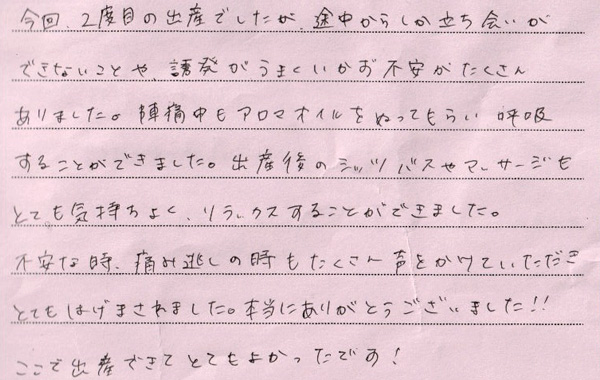 今回、2度目の出産でしたが、途中からしか立ち会いが
できないことや、誘発がうまくいかず不安がたくさん
ありました。陣痛中もアロマオイルをぬってもらい呼吸
することができました。出産後のシッツバスやマッサージも
とても気持ちよく、リラックスすることができました。
不安な時、痛み逃しの時もたくさん声をかけていただき
とてもはげまされました。本当にありがとうございました!!
ここで出産できてとてもよかったです!